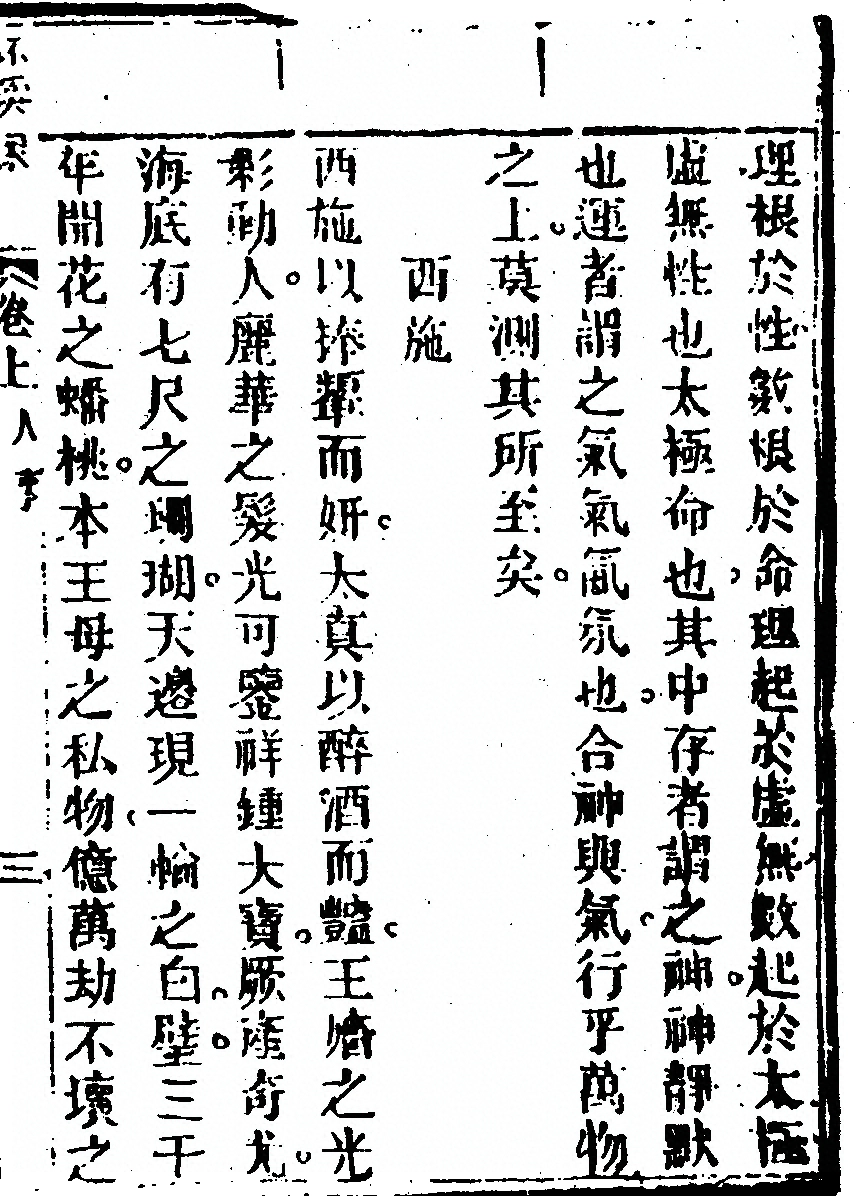 理根於性數根於命理起於虛無數起於太極
虛無性也太極命也其中存者謂之神神靜默
也運者謂之氣氣氤氳也合神與氣行乎萬物
之上莫測其所至矣
西施
西施以捧顰而妍太真以醉酒而豔王嬙之光
彩動人麗華之髮光可鑒祥鍾大寶厥產奇尤
海底有七尺之珊瑚天邊現一輪之白璧三千
年開花之蟠桃本王母之私物億萬劫不壞之
卷上 人事
三